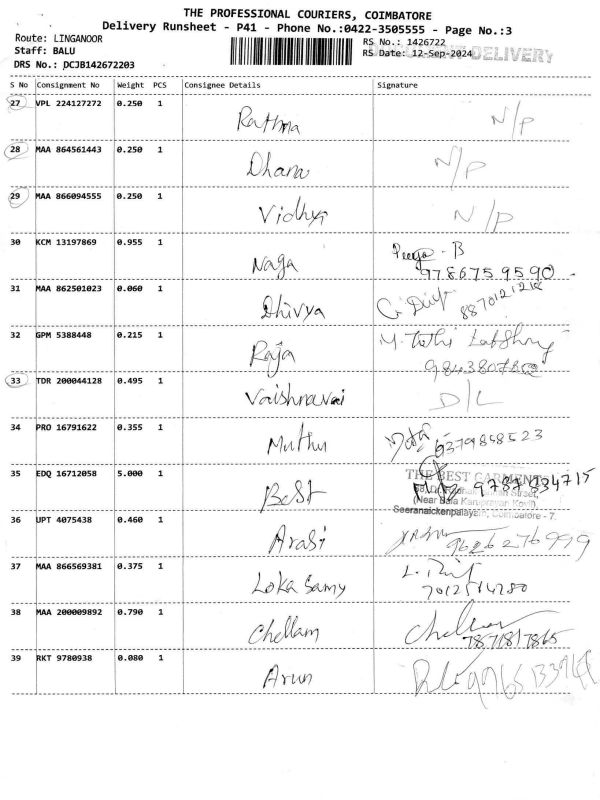 THE PROFESSIONAL COURIERS, COIMBATORE
Delivery Runsheet - P41 - Phone No.:0422-3505555 - Page No.:3
Route: LINGANOOR
RS No.: 1426722
Staff: BALU
RS Date: 12-Sep-2024 DELIVERY
DRS No.: DCJB142672203
S No Consignment No Weight PCS Consignee Details Signature
27 VPL 224127272 0.250 1 Rathna N/P
28 MAA 864561443 0.250 1 Dhana N/P
29 MAA 866094555 0.250 1 Vidhya N/P
30 KCM 13197869 0.955 1 Naga B
9786759590
31 MAA 862501023 0.060 1 Dhivya
32 GPM 5388448 0.215 1 Raja
33 TDR 200044128 0.495 1 Vaishnavai D/L
34 PRO 16791622 0.355 1 Muthu 9379848523
35 EDQ 16712058 5.000 1 Best
THE BEST GARMENT
Street,
(Near Bala
Seeranaickenpalayam, Coimbatore - 7.
36 UPT 4075438 0.460 1 Arasi
9626276999
37 MAA 866569381 0.375 1 Loka Samy
38 MAA 200009892 0.790 1 Chellam
7871817865
39 RKT 9780938 0.080 1 Arun